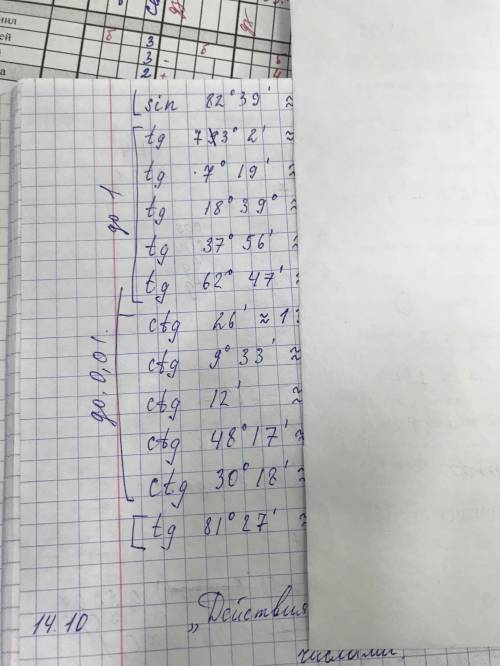 sin 82°39' ≈
tg 73°2' ≈
tg 7°19' ≈
tg 18°39° ≈
tg 37°56' ≈
tg 62° 47' ≈
до 1
ctg 26' ≈ 1
ctg 9°33' ≈
ctg 12' ≈
ctg 48°17' ≈
ctg 30°18' ≈
до 0,01.
tg 81°27' ≈
14.10 „Действия
числами.